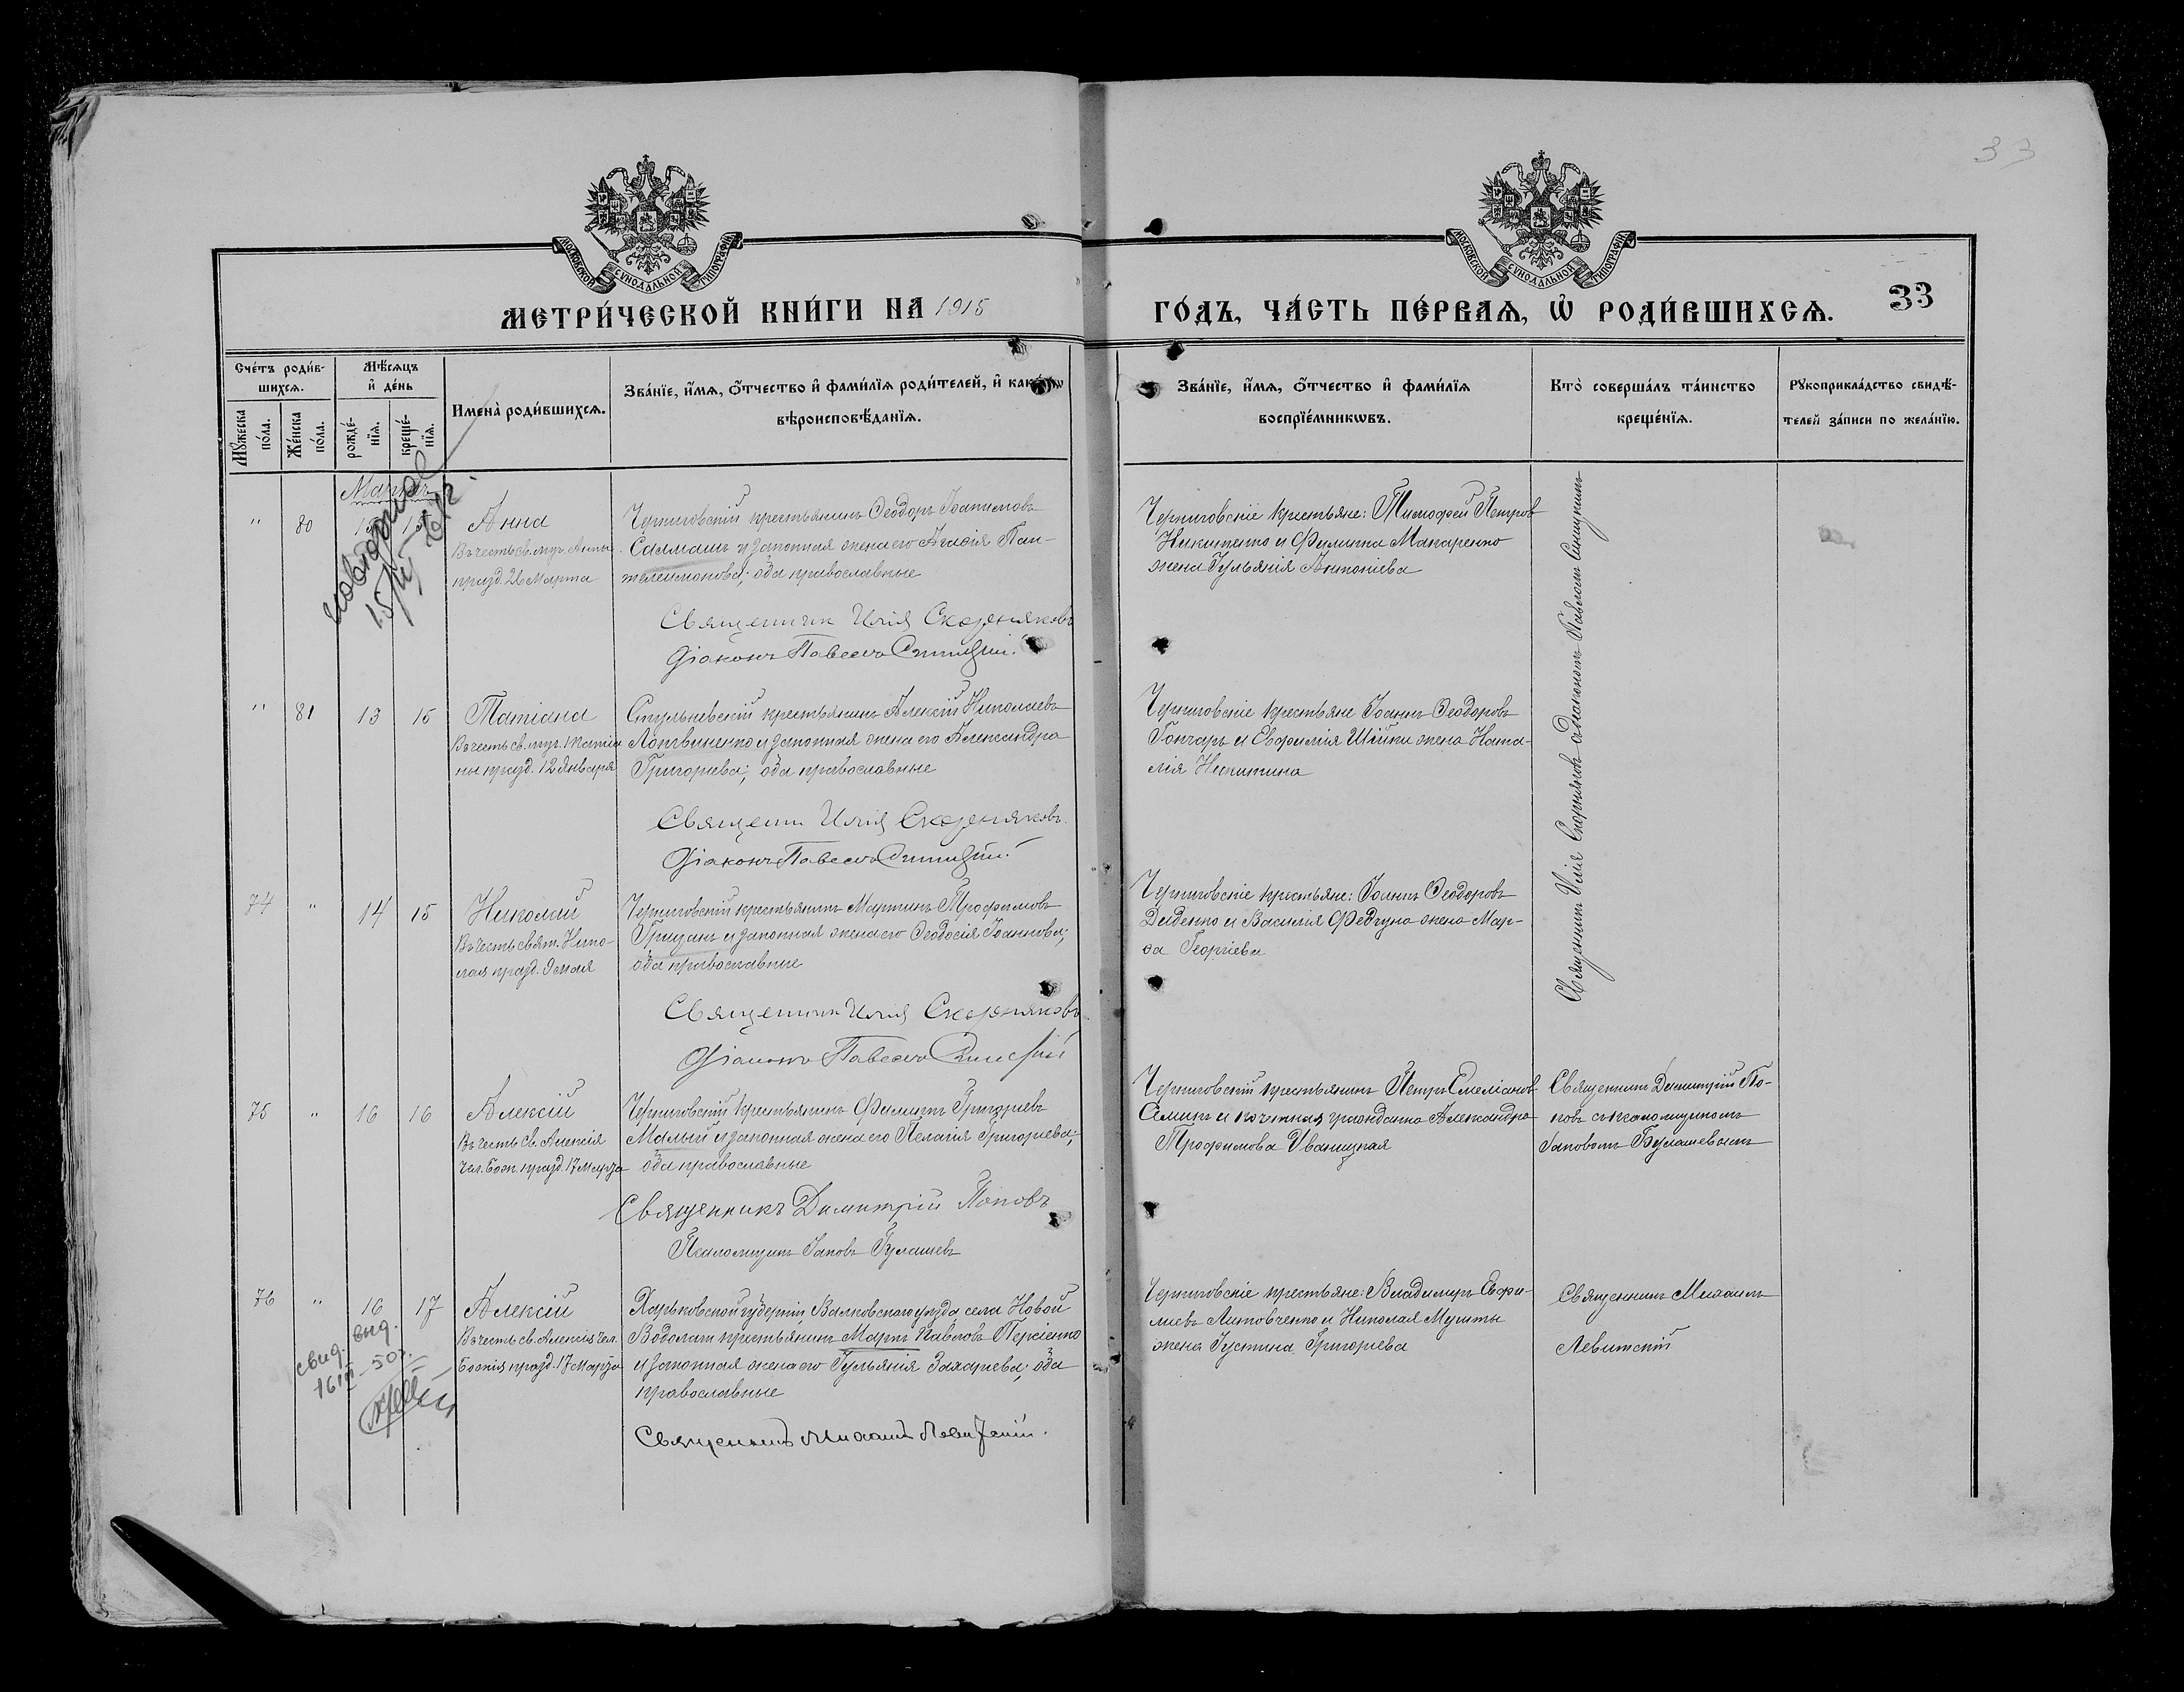 33
МОСКОВСКОЙ СУНОДАЛЬНОЙ ТИПОГРАФІИ
МОСКОВСКОЙ СУНОДАЛЬНОЙ ТИПОГРАФІИ
МЕТРИ́ЧЕСКОЙ КНИ́ГИ НА 1915
ГО́ДЪ, ЧА́СТЬ ПЕ́РВАѦ, Ѡ҆ РОДИ́ВШИХСѦ. 33
Счетъ роди́вшихсѧ.
Мꙋжеска по́ла.
Же́нска по́ла.
Мѣ́сѧцъ и҆ де́нь
рожде́нїѧ.
креще́нїѧ.
Имена̀ роди́вшихсѧ.
Зва́нїе, и҆́мѧ, ѻ҆́тчество и҆ фами́лїѧ роди́телей, и҆ како́гѡ
вѣроисповѣ́данїѧ.
Зва́нїе, и҆́мѧ, ѻ҆́тчество и҆ фами́лїѧ
воспрїе́мникѡвъ.
Кто̀ соверша́лъ та́инство
креще́нїѧ.
Рꙋкоприкла́дство свидѣ́-
телей за́писи по жела́нїю.
Мартъ
повторное
" 80 15
Анна
Въ честь св. муч. Анны
празд. 26 Марта
Черниговскій крестьянинъ Ѳеодоръ Іоакимовъ
Салмашъ и законная жена его Агаѳія Пан-
телеимонова; оба православные
Священник Илія Скорняковъ
Діаконъ Павелъ Синицкій.
Черниговскіе крестьяне: Тимофей Петровъ
Никитенко и Филиппа Макаренко
жена Іульянія Антоніева
Священникъ Илія Скорняковъ съ діакономъ Павломъ Синицкимъ
" 81 13 15
Татіана
Въ честь св. муч. Татіа-
ны празд. 12 Января
Стульневскій крестьянинъ Алексій Николаевъ
Логвиненко и законная жена его Александра
Григорьева; оба православные
Священ. Илія Скорняковъ.
Діаконъ Павелъ Синицкій.
Черниговскіе крестьяне Іоаннъ Ѳеодоровъ
Гончаръ и Евфимія Шійки жена Ната-
лія Никитина
74 " 14 15
Николай
Въ честь свят. Нико-
лая празд. 9 мая
Черниговскій крестьянинъ Мартинъ Трофимовъ
Грицанъ и законная жена его Ѳеодосія Іоаннова;
оба православные
Священник Илія Скорняковъ
Діаконъ Павелъ Синицкій
Черниговскіе крестьяне: Іоаннъ Ѳеодоровъ
Диденко и Василія Федчуна жена Мар-
ѳа Георгіева
75 " 16 16
Алексій
Въ честь св. Алексія
чел. Бож. празд. 17 Марта
Черниговскій крестьянинъ Филиппъ Григорьевъ
Малый и законная жена его Пелагія Григорьева;
оба православные
Священникъ Димитрій Поповъ
Псаломщикъ Іаковъ
Черниговскій крестьянинъ Петръ Емеліановъ
и почетная гражданка Александра
Трофимова Иваницкая
Священникъ Димитрій По-
повъ съ псаломщикомъ
Іаковомъ
76 " 16 17
Алексій
Въ честь св. Алексія чел.
Божія празд. 17 Марта
свид. выд.
16/III-50 г.
Харьковской губерніи, Валковскаго уѣзда, села Новой
Водолаги крестьянинъ Маркъ Павловъ Персіенко
и законная жена его Іульянія Захарьева; оба
православные
Священникъ Михаилъ Левитскій.
Черниговскіе крестьяне: Владимиръ Евфи-
міевъ Литовченко и Николая Мушты
жена Іустина Григорьева
Священникъ Михаилъ
Левитскій